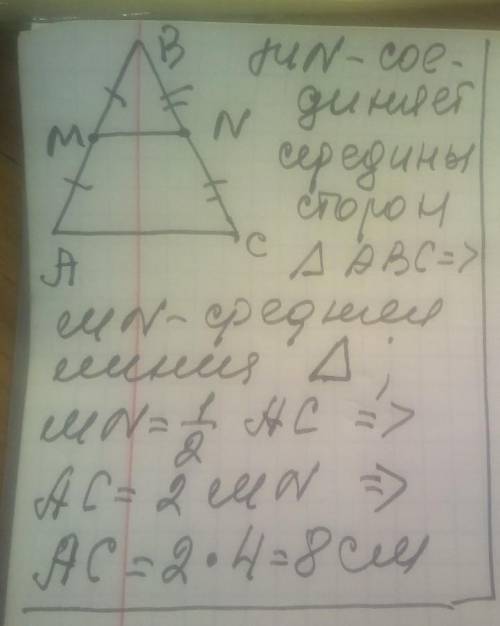 B
MN-сое-
диняет
M
N
середины
сторон
A
C
Δ ABC=>
MN-средняя
линия Δ;
MN=1/2 AC =>
AC=2MN =>
AC=2•4=8см